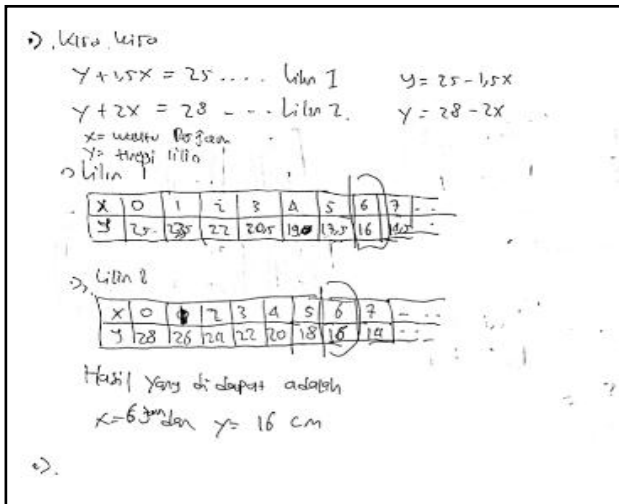 •). Kira kira
Y + 1,5X = 25 .... Lilin I y = 25 - 1,5x
Y + 2X = 28 - - - Lilin 2. y = 28 - 2x
X = waktu Perjam
Y = tinggi lilin
Lilin 1
X 0 1 2 3 4 5 6 7 - - -
y 25 23,5 22 20,5 19 17,5 16 14,5 - - -
Lilin 2
X 0 2 3 4 5 6 7 - - -
y 28 26 24 22 20 18 16 14 - - -
Hasil yang di dapat adalah
x = 6 jam dan y = 16 cm
•).